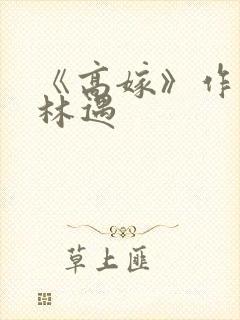 《高嫁》作
林遇
草上匪